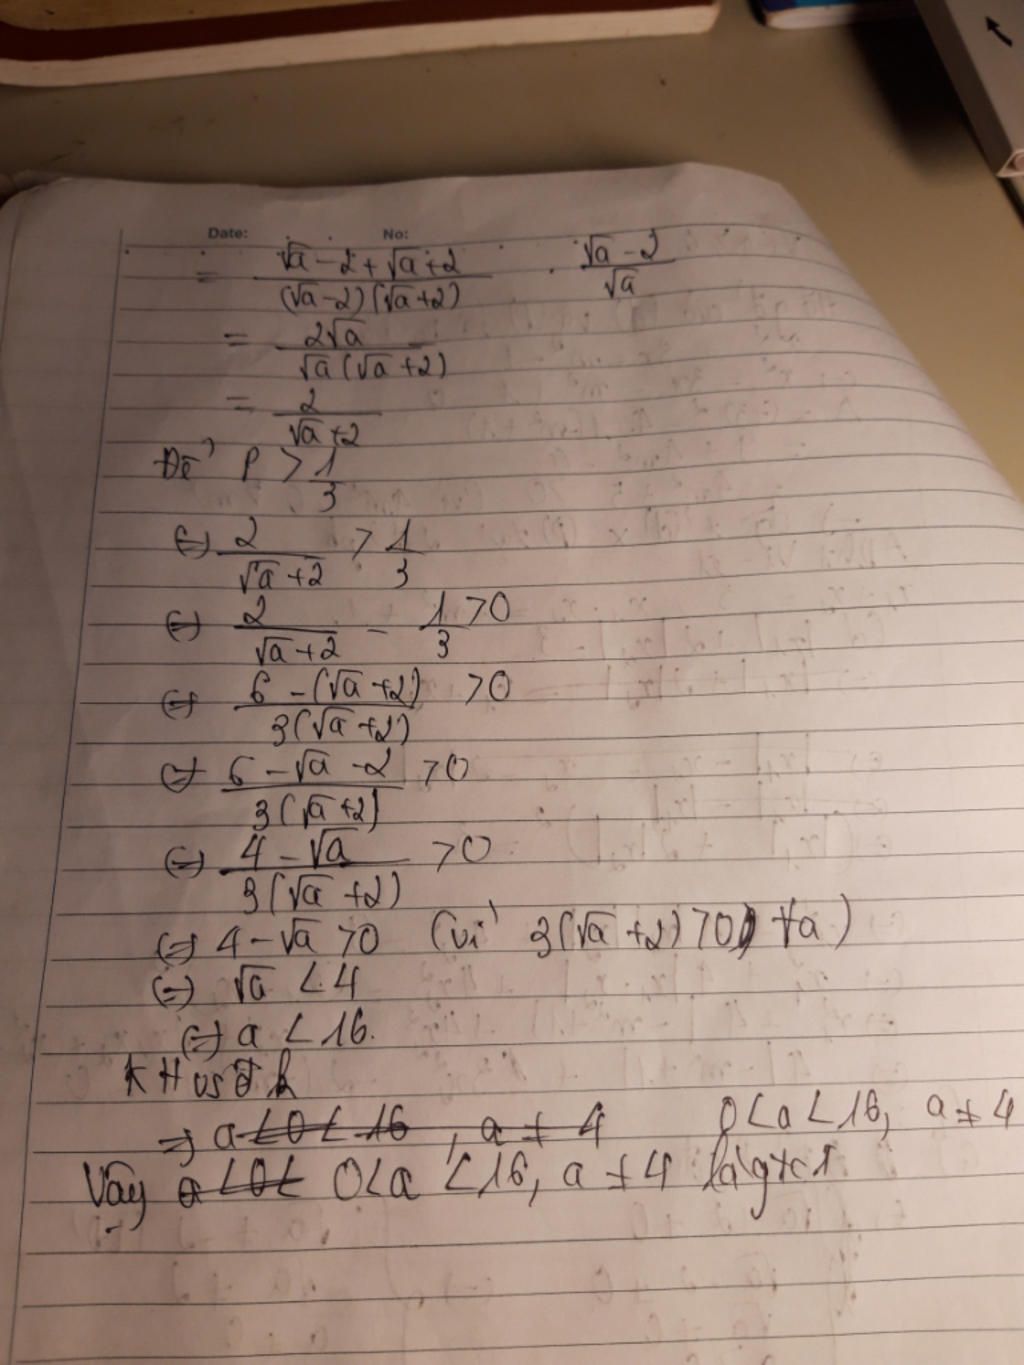 Date: No:
= √a - 2 + √a + 2 / (√a - 2)(√a + 2) . √a - 2 / √a
= 2√a / √a (√a + 2)
= 2 / √a + 2
Để P > 1/3
⇔ 2 / √a + 2 > 1/3
⇔ 2 / √a + 2 - 1/3 > 0
⇔ 6 - (√a + 2) / 3(√a + 2) > 0
⇔ 6 - √a - 2 / 3(√a + 2) > 0
⇔ 4 - √a / 3(√a + 2) > 0
⇔ 4 - √a > 0 (vì 3(√a + 2) > 0, ∀a)
⇔ √a < 4
⇔ a < 16.
KH với đk
⇒ a < 0 < 16, a ≠ 4 0 < a < 16, a ≠ 4
Vậy a < 0 < 0 < a < 16, a ≠ 4 là gtct